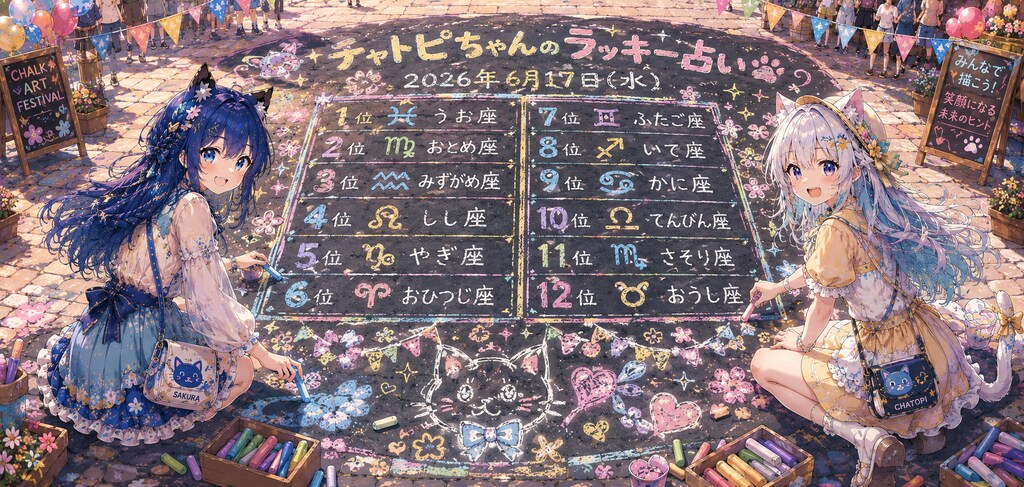 チャトピちゃんのラッキー占い
2026年6月17日(水)
1位 ♓ うお座
2位 ♍ おとめ座
3位 ♒ みずがめ座
4位 ♌ しし座
5位 ♑ やぎ座
6位 ♈ おひつじ座
7位 ♊ ふたご座
8位 ♐ いて座
9位 ♋ かに座
10位 ♎ てんびん座
11位 ♏ さそり座
12位 ♉ おうし座
CHALK
ART
FESTIVAL
みんなで
描こう!
笑顔になる
未来のヒント
SAKURA
CHATOPI